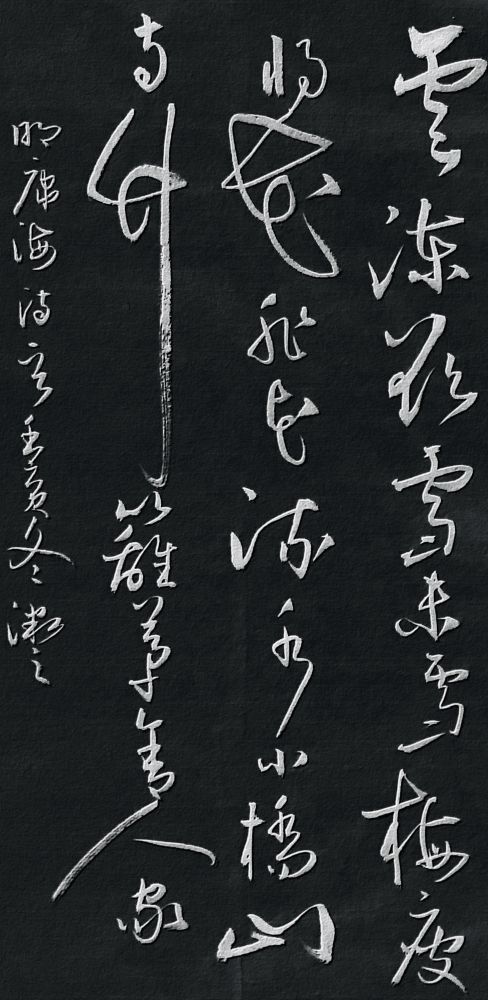 雲凍欲雪未雪梅瘦
將花非花流水小橋山
寺竹籬茅舍人家
明康海詩 壬寅冬 之